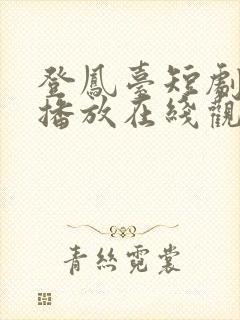 登鳳臺短劇
播放在綫觀
青絲霓裳